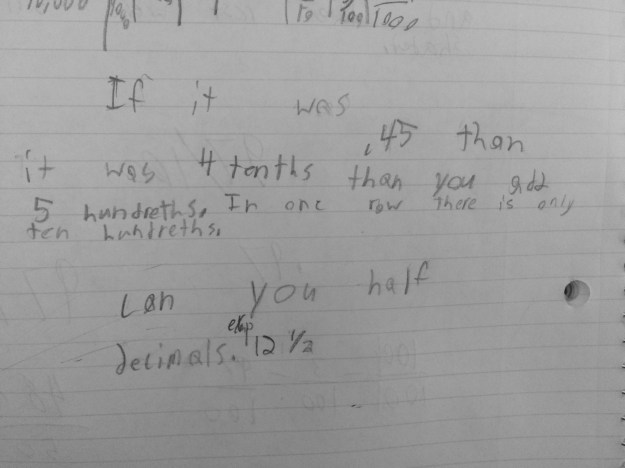 10,000 10 100 1000
If it was
.45 than
it was 4 tenths than you add
5 hundreths. In one row there is only
ten hundreths.
Can you half
exp
decimals. 12 1/2